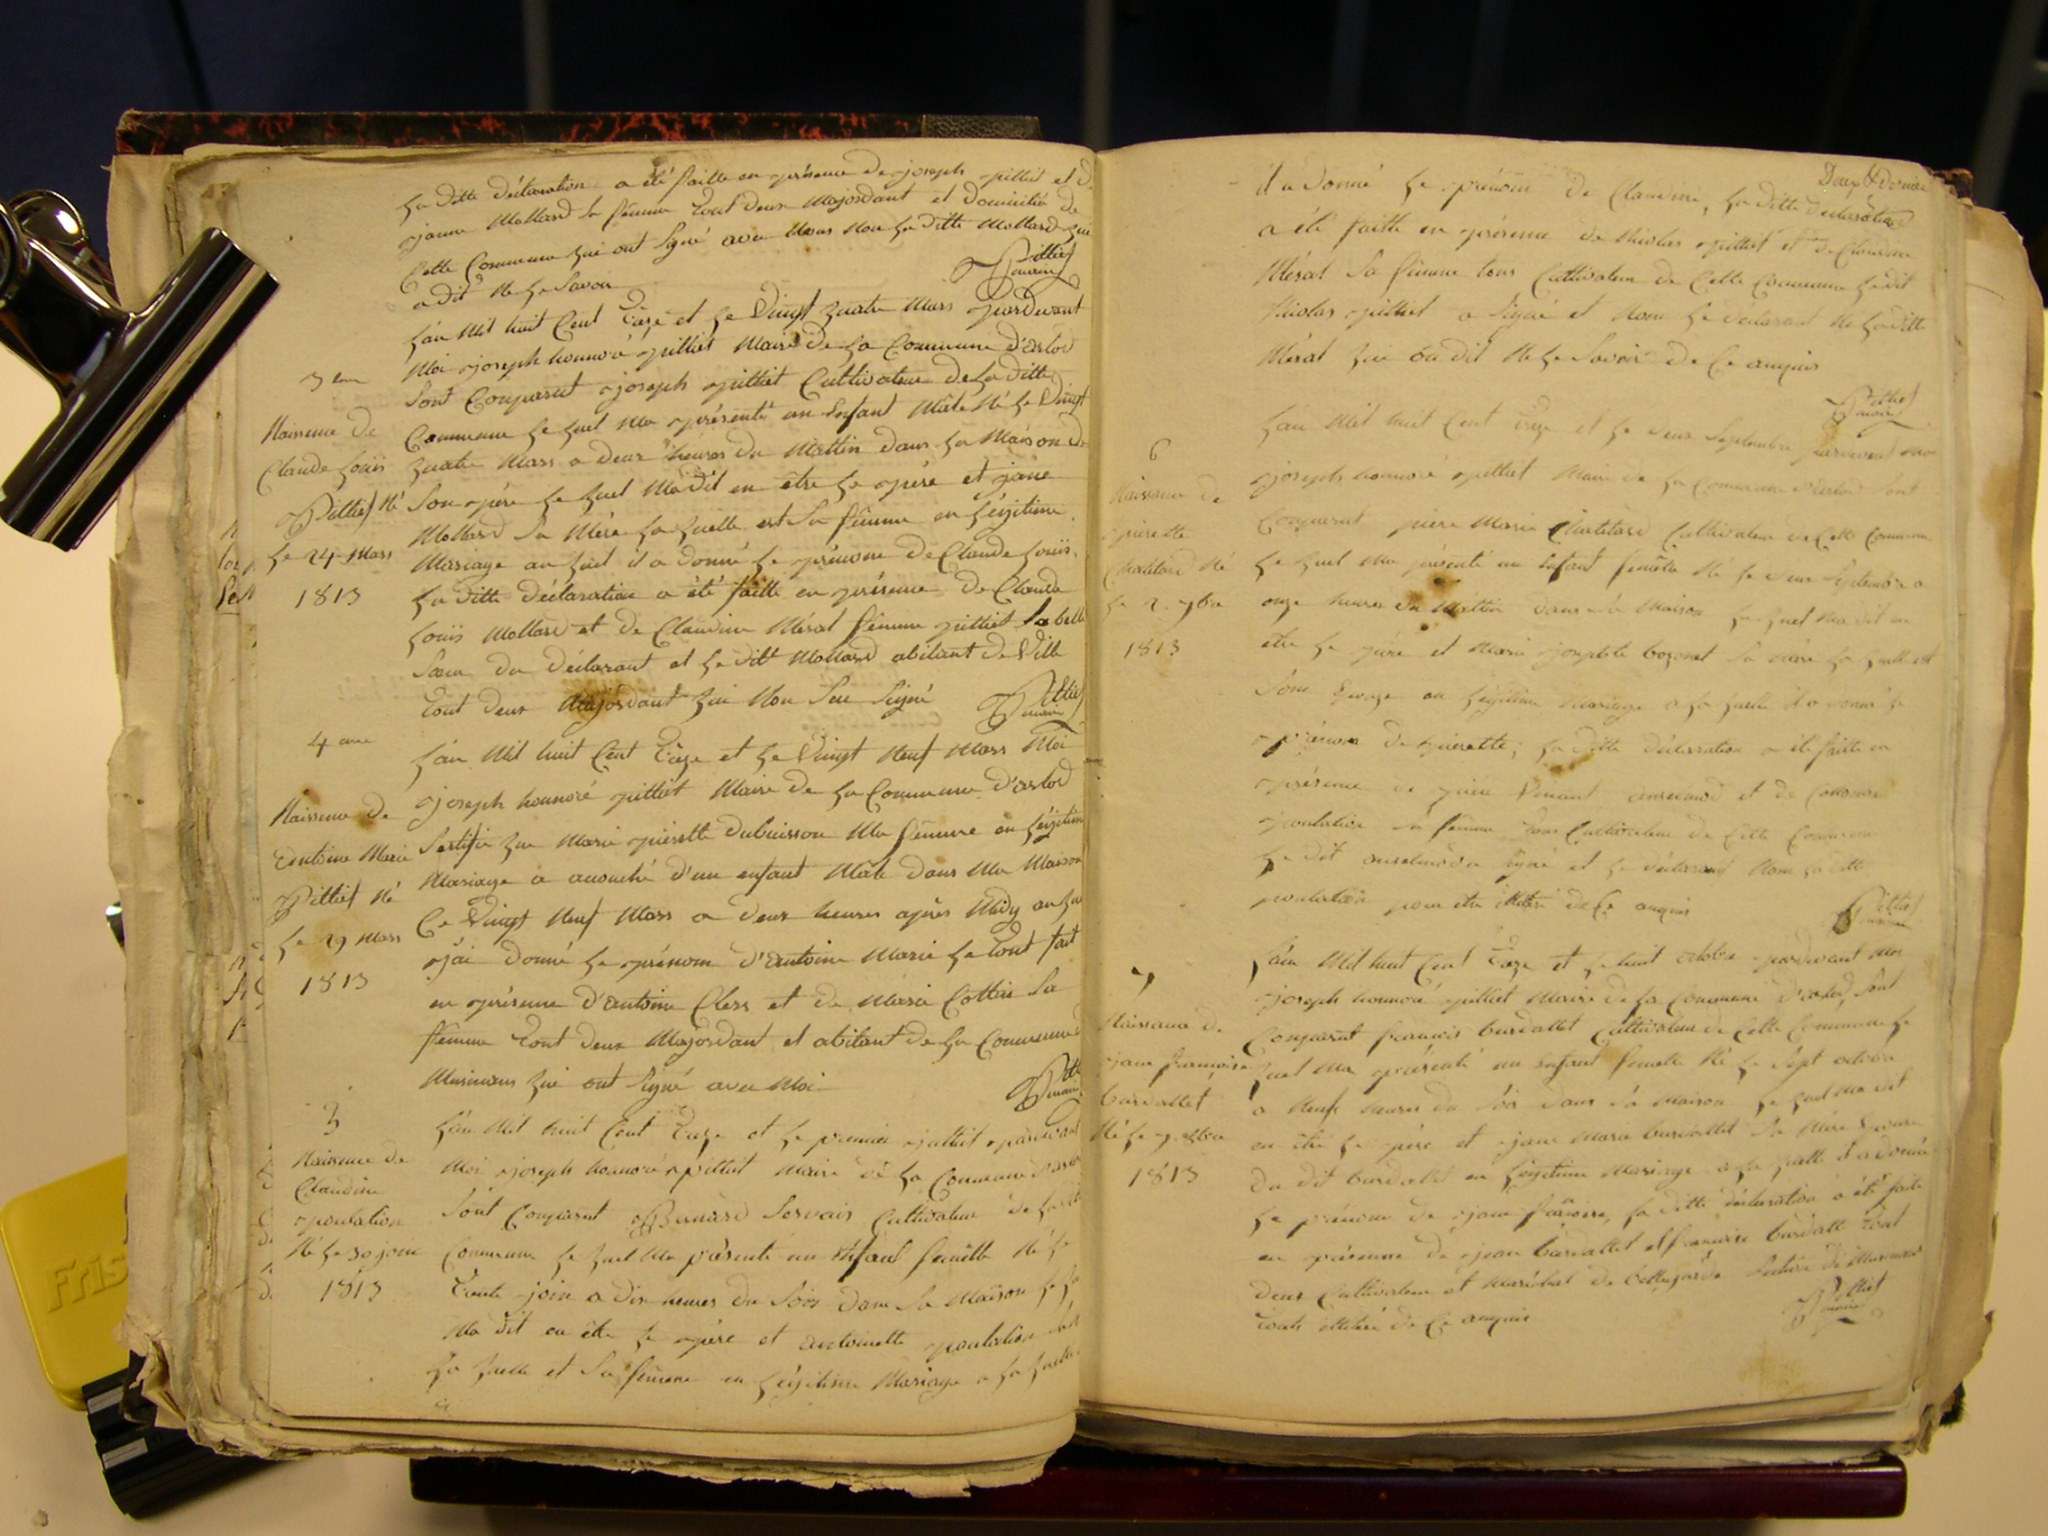 la ditte déclaration a été faitte en présence de joseph pittiet et d
jeanne Mollard sa fêmme tout deux Majordant et domicilié de
Cette Commune qui ont signé avec Nous Non la ditte Mollard qui
a dit Ne le savoir
Pittiet
maire
3 eme
Naissence de
Claude Louis
Pittiet Né
le 24 Mars
1813
l'an Mil huit Cent Treze et le Vingt quatre Mars pardevant
Moi joseph honnoré pittiet Maire de la Commune d'arlod
sont Comparut joseph pittiet Cultivateur de la ditte
Commune le quel Ma présenté un enfant Mâle Né le Vingt
quatre Mars a deux heures du Mattin dans la Maison de
son père le quel Ma dit en être le père et jâne
Mollard sa Mère la quelle est sa fêmme en légitime
Mariage au quel il a donné le prénom de Claude Louis
la ditte déclaration a été faitte en présence de Claude
Louis Mollard et de Claudine Mérat fêmme pittiet la belle
sœur du déclarant et le dit Mollard abitant de Ville
tout deux Majordant qui Non seu signé
Pittiet
maire
4 eme
Naissence de
antoine Marie
Pittiet Né
le 29 Mars
1813
l'an Mil huit Cent Treze et le Vingt Neuf Mars Moi
joseph honnoré pittiet Maire de la Commune d'arlod
Sertifie que Marie pierette dubuisson Ma fêmme en légitime
Mariage a acouché d'un enfant Mâle dans Ma Maison
Ce Vingt Neuf Mars a deux heures après Midy au quel
j'ai donné le prénom d'antoine Marie le tout fait
en présence d'antoine Cless et de Marie Cottin sa
fêmme tout deux Majordant et abitant de la Commune de
Musinens qui ont signé avec Moi
Pitti
maire
Naissence de
Claudine
poulation
Né le 30 join
1813
l'an Mil huit Cent Treze et le premier juillet pardevant
Moi joseph honnoré pittiet maire de la Commune d'arlod
sont Comparut Bernard servais Cultivateur de la dit
Commune le quel Ma présenté un enfant femelle Né le
trente join a dix heures du soir dans sa Maison le q
Ma dit en être le père et antoinette poulation
la quelle et sa fêmme en légitime Mariage a la quelle
Doux & dernier
il a donné le prénom de Claudine, la ditte déclaration
a été faitte en présence de Nicolas pittiet et de Claudine
Mérat sa fêmme tous Cultivateur de Cette Commune le dit
Nicolas pittiet a signé et Non le déclarant Ne la ditte
Mérat qui ont dit Ne le savoir de Ce anquis
Pittiet
maire
6
Naissance de
pierette
Chatelard Né
le 2 7bre
1813
l'an Mil huit Cent Treze et le deux Septembre pardevant moi
joseph honnoré pittiet Maire de la Commune d'arlod sont
Comparut pierre Marie Chatelard Cultivateur de Cette Commune
le quel Ma présenté un enfant femelle Né le deux Septembre a
onze heures du Mattin dans sa Maison le quel Ma dit en
etre le père et Marie josephte bozonet sa mère la quelle est
son épouze en légitime Mariage a la quelle il a donné le
prénom de pierette; la ditte déclaration a été faitte en
présence de pierre Venant ansermod et de
poulation sa fêmme tous Cultivateur de Cette Commune
le dit ansermod a signé et le déclarant Non la ditte
poulation pour etre illitéré de Ce anquis
Pittiet
maire
7
Naissance de
jane françoise
burdallet
Né le 7 8bre
1813
l'an Mil huit Cent Treze et le huit octobre pardevant Moi
joseph honnoré pittiet Maire de la Commune d'arlod, sont
Comparut françois burdallet Cultivateur de Cette Commune le
quel Ma présenté un enfant femelle Né le sept octobre
a Neuf heures du soir dans sa Maison le quel Ma dit
en être le père et jane Marie burdallet sa Mère
du dit burdallet en légitime Mariage a la quelle il a donné
le prénom de jane françoise, la ditte déclaration a été faite
en présence de jean burdallet et françoise burdallet tout
deux Cultivateur et Maréchal de bellegarde section de Musinens
touts illitéré de Ce anquis
Pittiet
maire
Fris